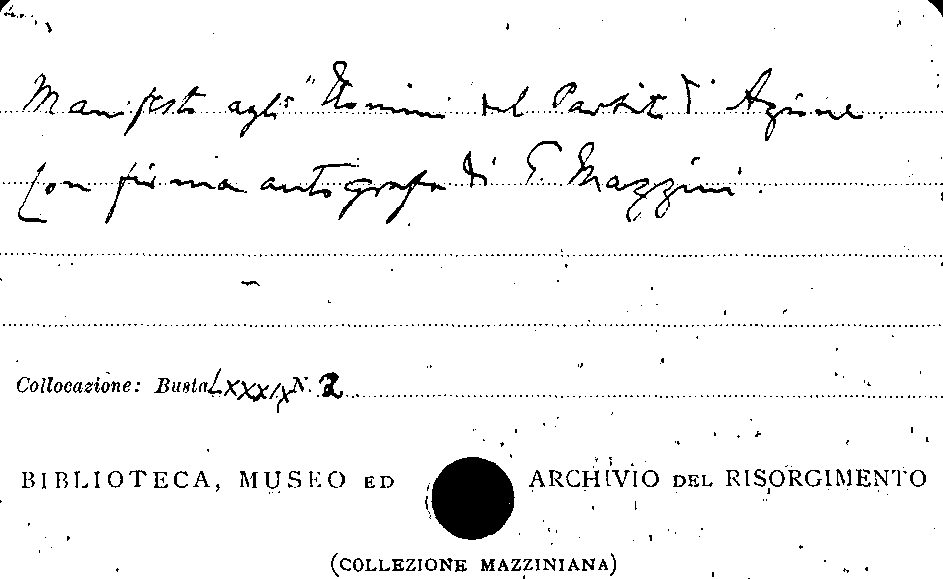 Manifesto agli "Uomini del Partito d'Azione.
Con firma autografa di G. Mazzini.
Collocazione: Busta LXXXIX N. 2
BIBLIOTECA, MUSEO ED ARCHIVIO DEL RISORGIMENTO
(COLLEZIONE MAZZINIANA)